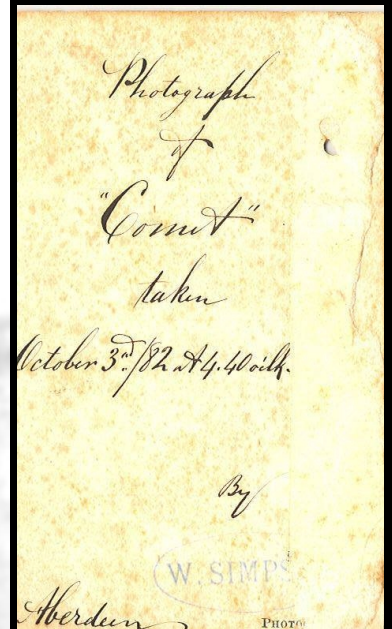 Photograph
of
"Comet"
taken
October 3rd/82 at 4.40 oclk.
By
W. SIMPS
Aberdeen
PHOTO